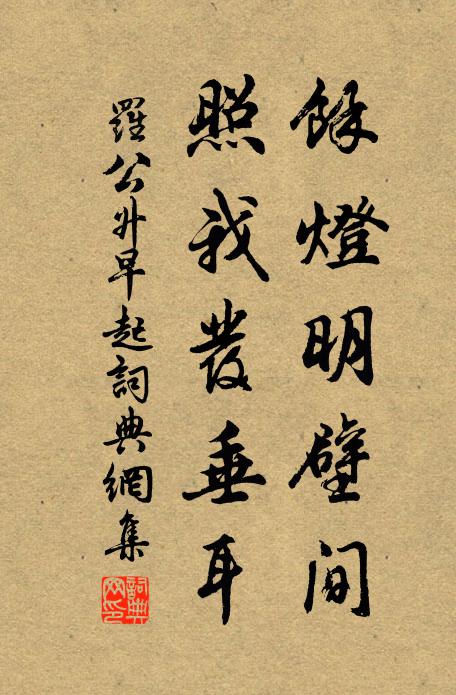 餘燈明壁間
照我發垂耳
羅公升早起詞典網集
詞典網印